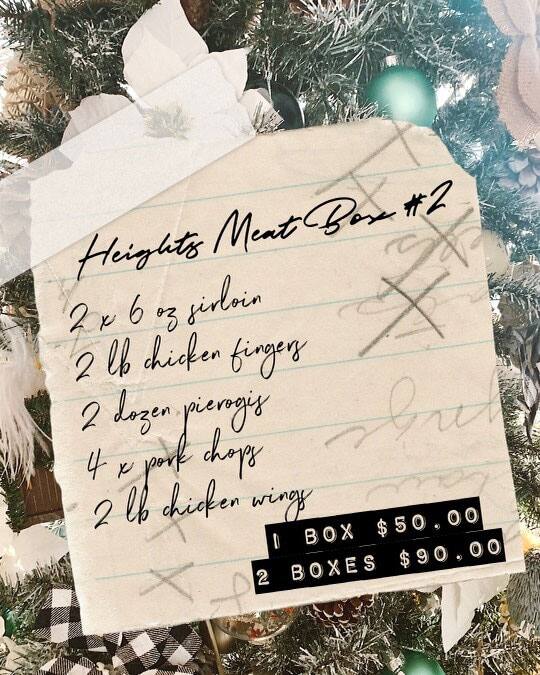 Heights Meat Box #2
2 x 6 oz sirloin
2 lb chicken fingers
2 dozen pierogis
4 x pork chops
2 lb chicken wings
1 BOX $50.00
2 BOXES $90.00